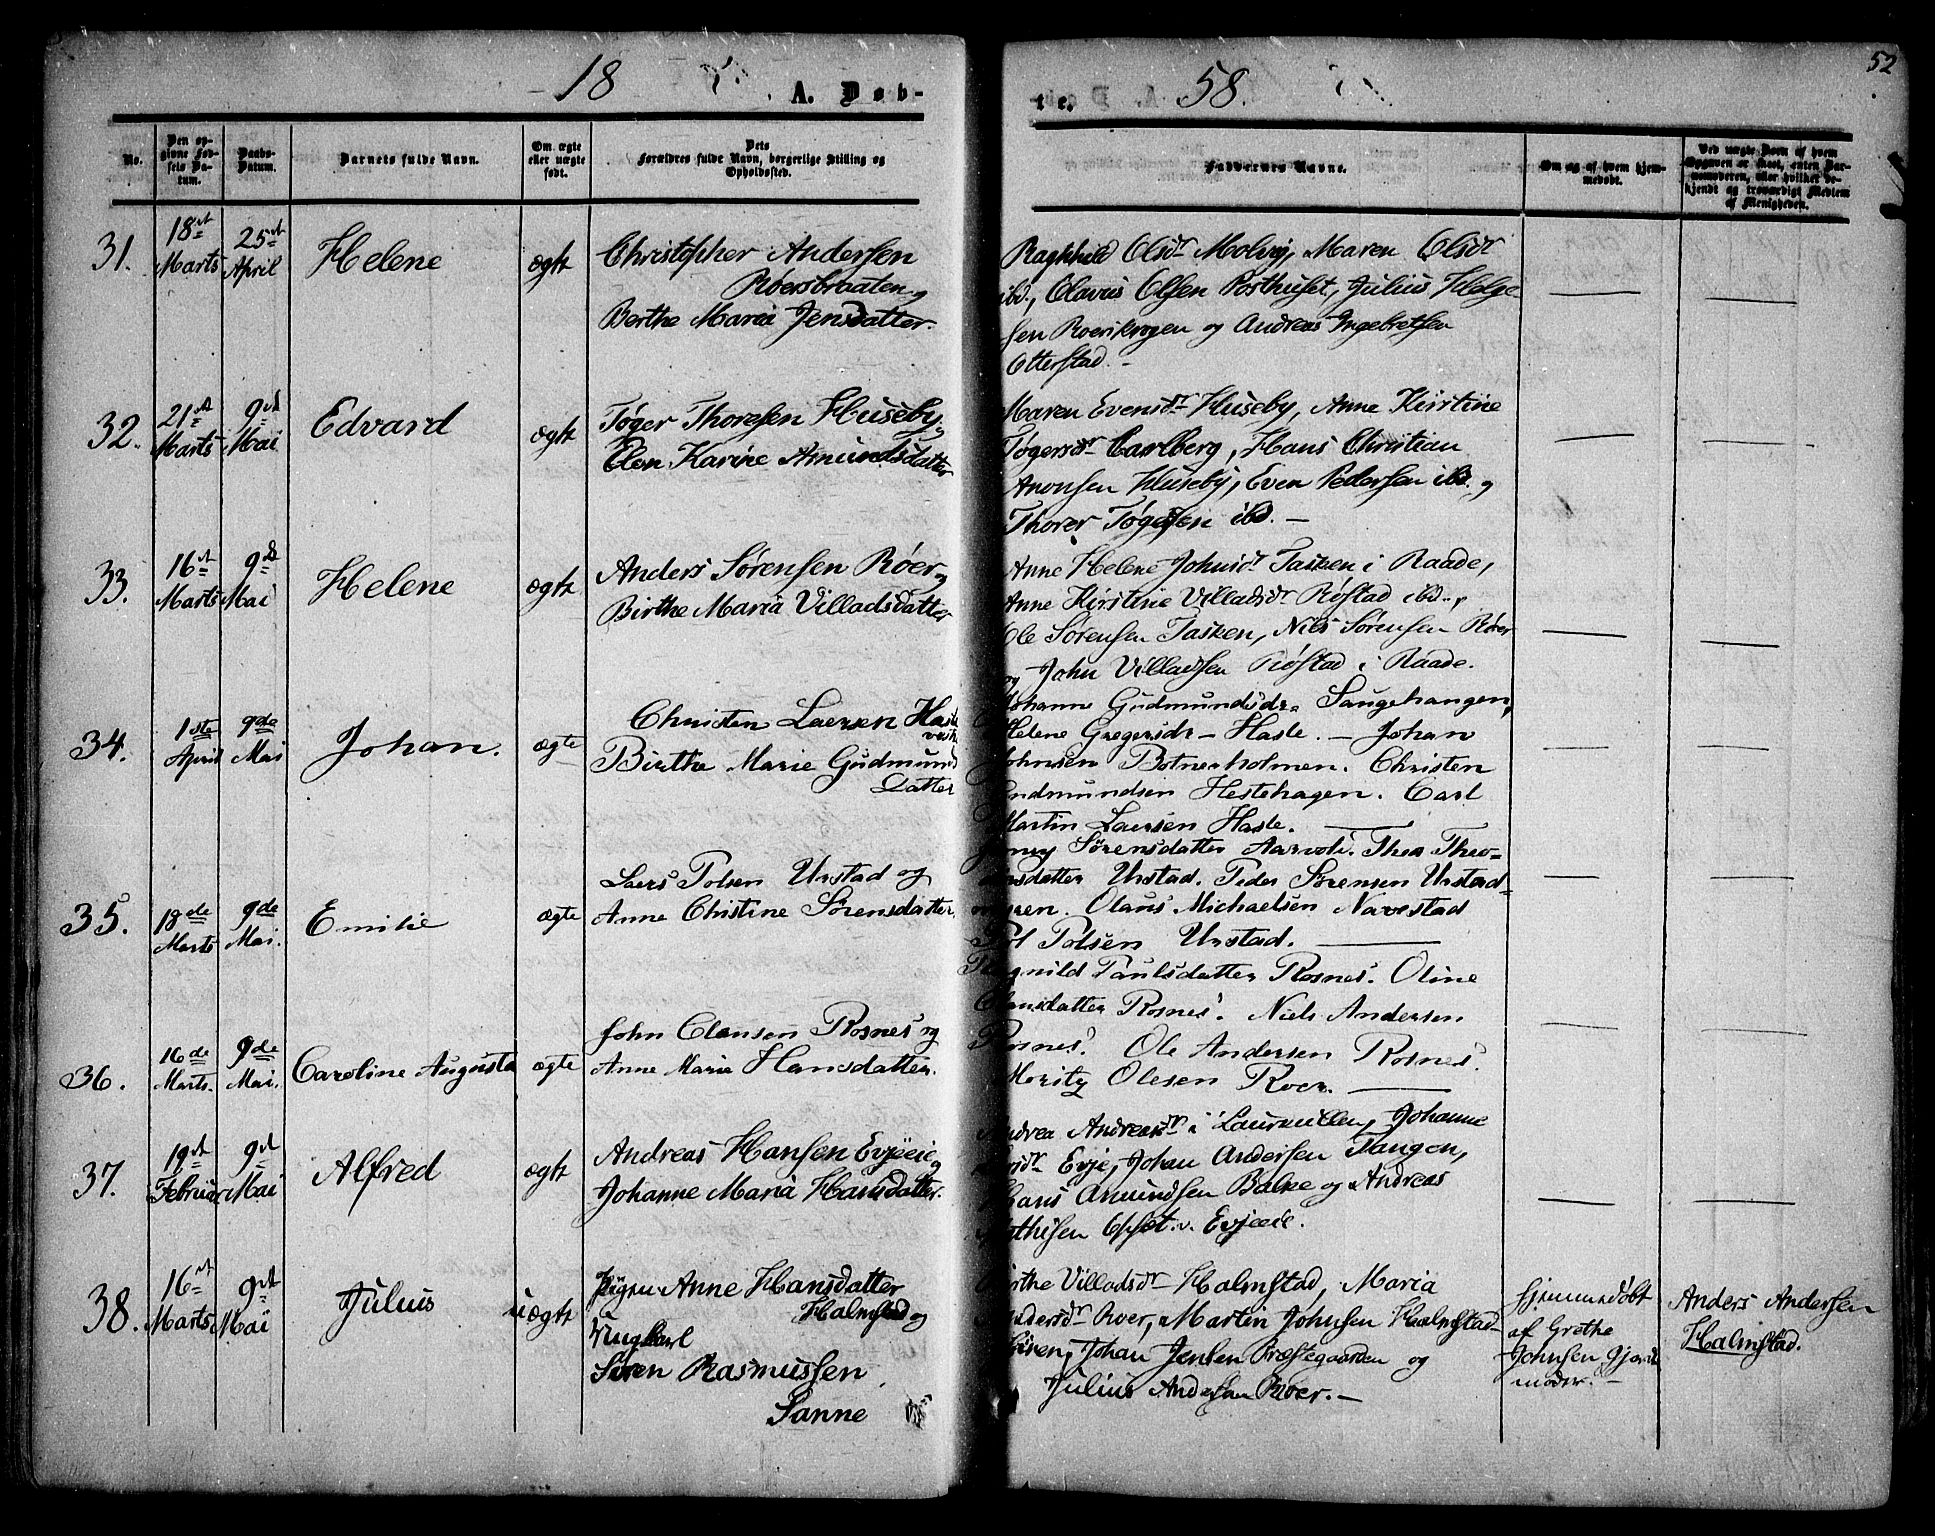 18 58. 52
A. Døb- te.
No.
Den op-
givne Fød-
sels Da-
tum.
Daabs-
Datum.
Barnets fulde Navn.
Om ægte
eller uægte
født.
Dets
Forældres fulde Navn, borgerlige Stilling og
Opholdssted.
Faddernes Navne.
Om og af hvem hjem-
medøbt.
Ved uægte Børn af hvem
Opgaven er skeet, enten Bar-
nemoderen, eller hvilket be-
kjendt og troværdigt Medlem
af Menigheden.
31.
18de
Marts
25de
April
Helene
ægte
Christopher Andersen
Røersbraaten og
Berthe Maria Jensdatter.
Ragnhild Olsdr Molvig, Maren Olsdr
ibd., Olavus Olsen Posthuset, Julius Helge-
sen Roerikrogen og Andreas Ingebretsen
Otterstad. –
32.
21st
Marts
9de
Mai
Edvard
ægte
Tøger Thoresen Huseby,
Elen Karine Amundsdatter
Maren Evensdr Huseby, Anne Kirstine
Tøgersdr Carlberg, Hans Christian
Aronsen Huseby, Even Pedersen ibd. og
Thorer Tøgersen ibd. –
33.
16de
Marts
9de
Mai
Helene
ægte
Anders Sørensen Røer og
Birthe Maria Villadsdatter
Anne Helene Johnsdr Tasken i Raade,
Anne Kirstine Villadsdr Røstad ibd.,
Ole Sørensen Tasken, Niels Sørensen Røer
og John Villadsen Røstad i Raade.
34.
1ste
April
9de
Mai
Johan.
ægte
Christen Laersen Hasle
Birthe Marie Gudmunds
Datter
Johanne Gudmundsdr. Saugehaugen,
Helene Gregersdr – Hasle. – Johan
Johnsen Botnerholmen. Christen
Gudmundsen Hestehagen. Carl
Martin Laersen Hasle.
35.
18de
Marts
9de
Mai.
Emilie
ægte
Laers Polsen Unstad og
Anne Christine Sørensdatter.
Sørensdatter Aarvold. Thea Theo-
Unstad. Peder Sørensen Unstad-
Olaus Michaelsen Navestad
Pol Polsen Unstad.
36.
16de
Marts.
9de
Mai.
Caroline Augusta
ægte
John Clausen Rosnes og
Anne Marie Hansdatter.
Ragnild Paulsdatter Rosnes. Oline
Rosnes. Niels Andersen
Rosnes. Ole Andersen Rosnes.
Moritz Olesen Roer.
37.
19de
Februar
9de
Mai
Alfred
ægte
Andreas Hansen Evjeeie og
Johanne Maria Hansdatter.
Andrea Andreasdr i Laurmillen, Johanne
Evje, Johan Andersen Tangen,
Hans Amundsen Balke og Andreas
Mathisen Opset v. Evjeeie.
38.
16de
Marts
9de
Mai
Julius
uægte
Pigen Anne Hansdatter
Halmstad og
Ungkarl
Søren Rasmussen
Sanne
Birthe Villadsdr Halmstad, Maria
Andersdr Roer, Martin Johnsen Halmstad-
Johan Jensen Præstegaarden og
Julius Andersen Roer. –
hjemmedøbt
af Grethe
Johnsen Gjord-
moder. –
Anders Andersen
Halmstad.